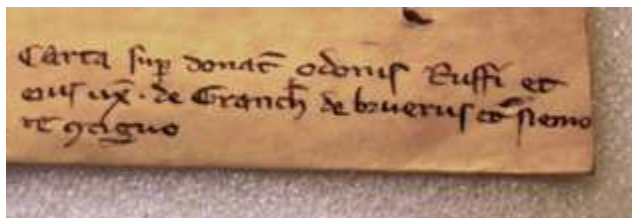 Carta sup donac̄ odonis Ruffi et
eius ux̄ · de Granch̄ de brueriis et nemo
re ꝯtiguo